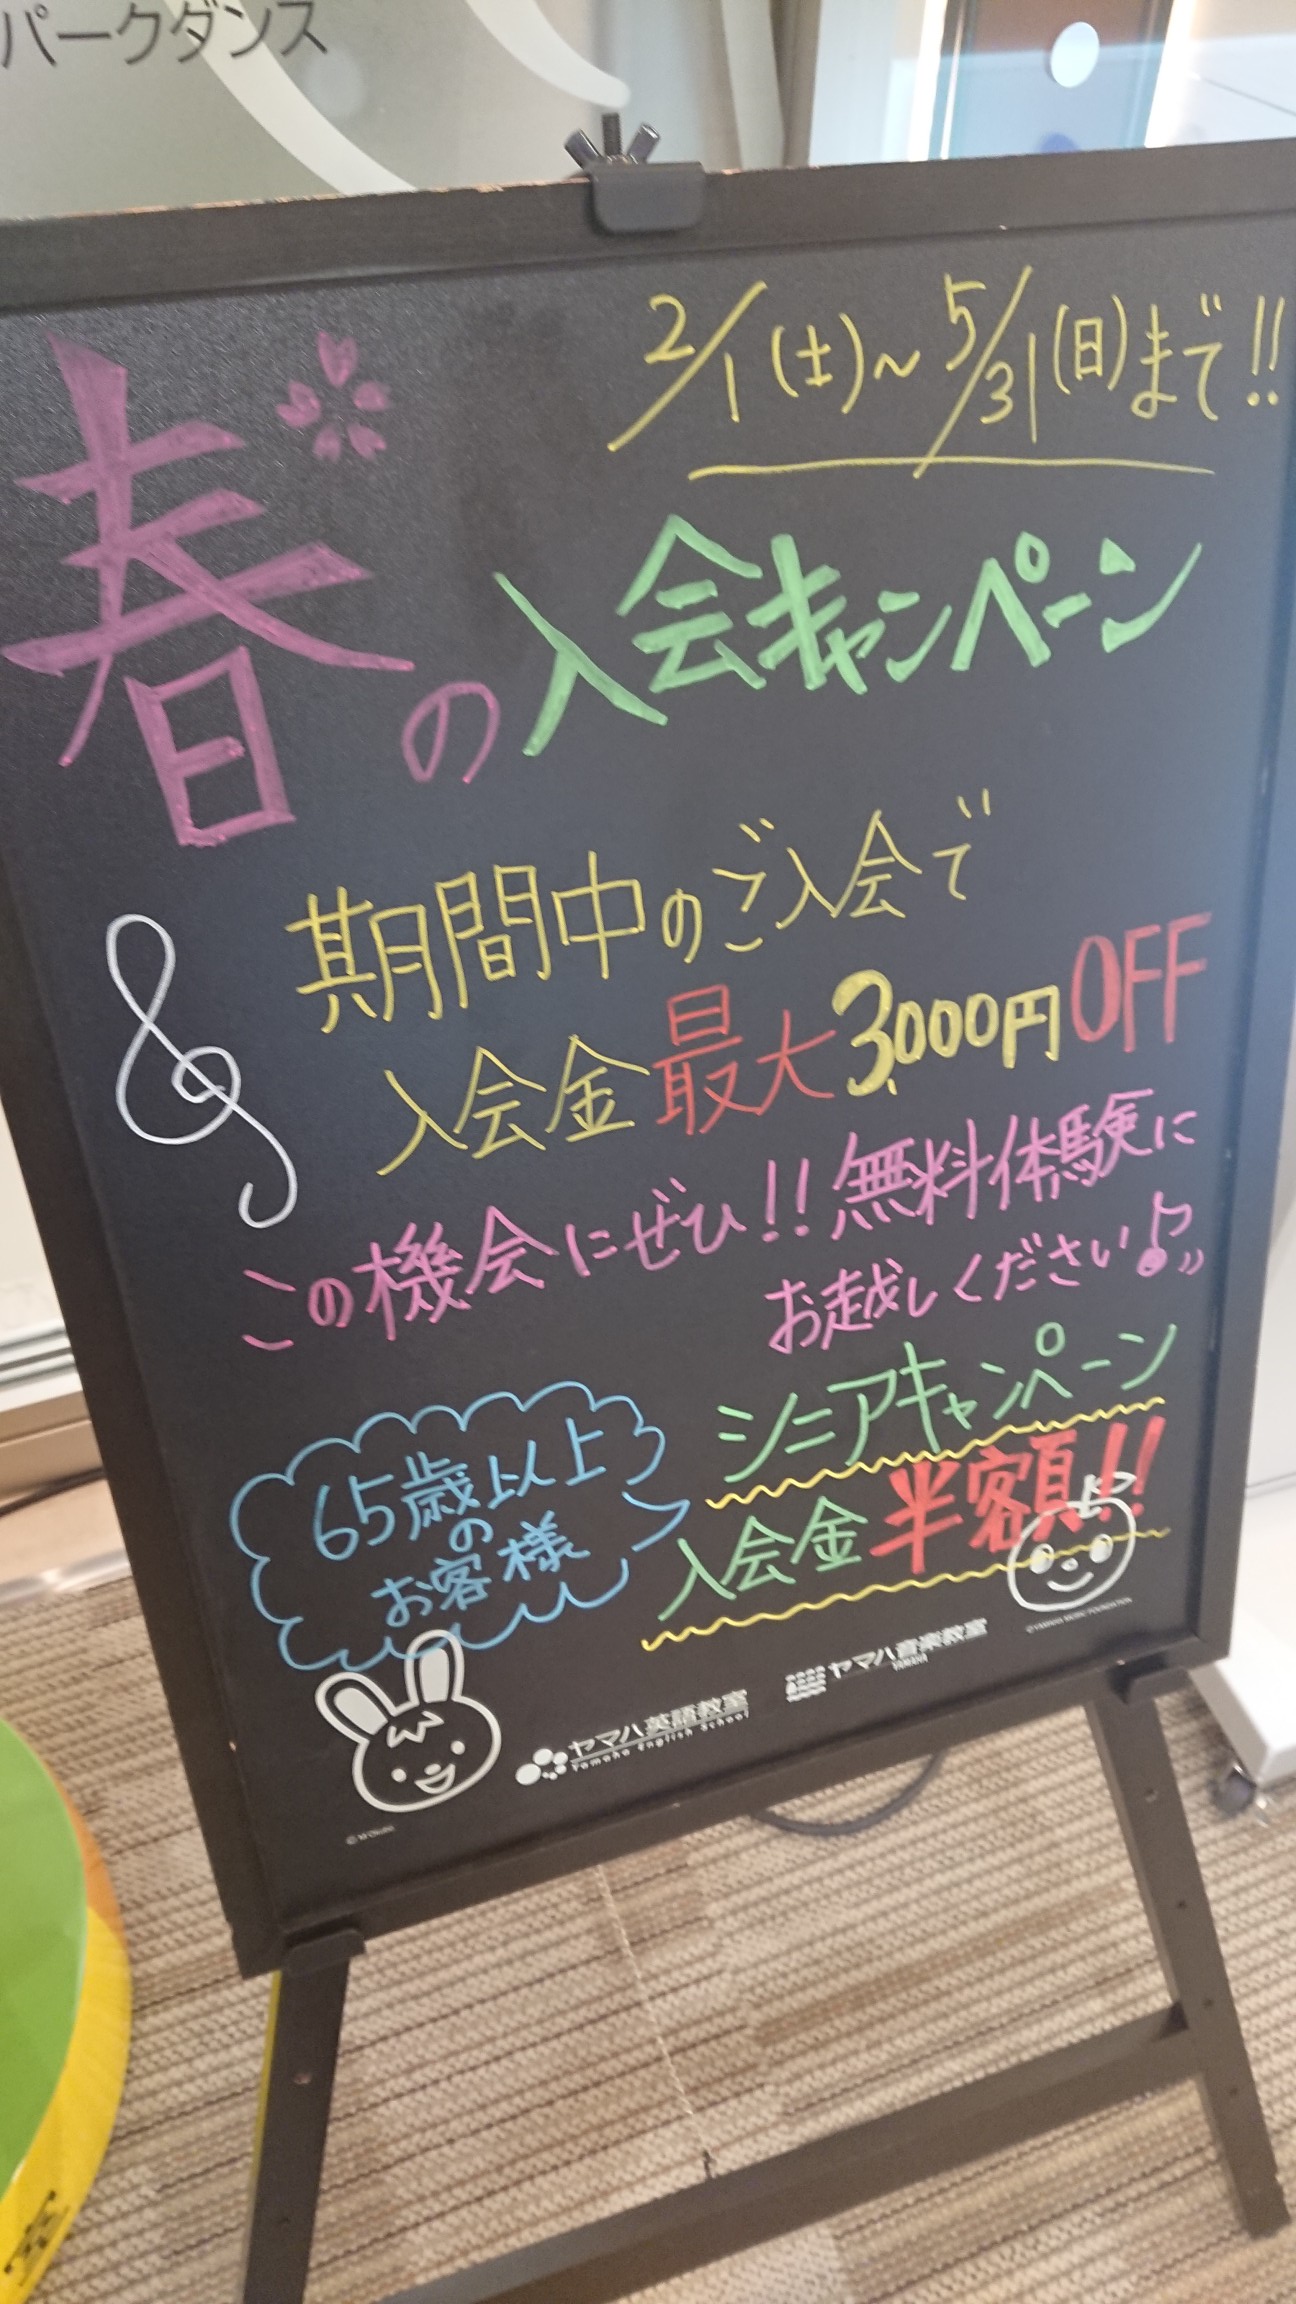 パークダンス
2/1(土)～5/31(日)まで!!
春の入会キャンペーン
期間中のご入会で
入会金最大3,000円OFF
この機会にぜひ!!無料体験に
お越しください♪
65歳以上
の
お客様
シニアキャンペーン
入会金半額!!
ヤマハ英語教室
Yamaha English School
ヤマハ音楽教室
YAMAHA
©YAMAHA MUSIC FOUNDATION